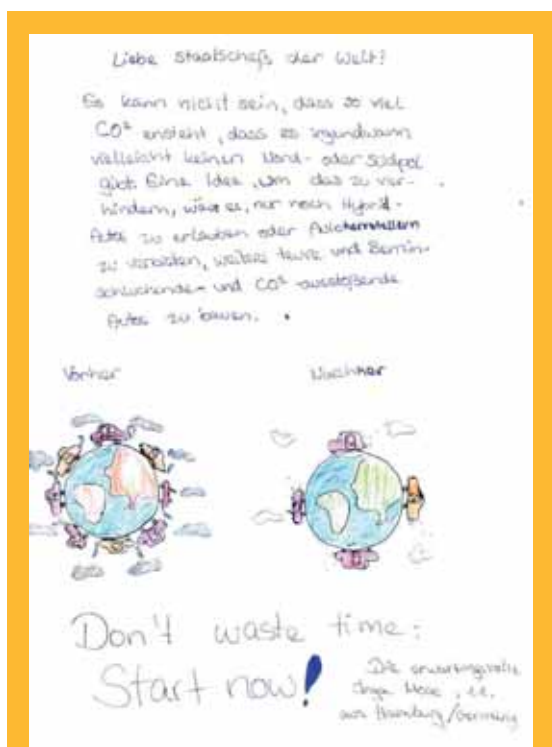 Liebe Staatschefs der Welt!
Es kann nicht sein, dass so viel
CO² ensteht, dass es irgendwann
vielleicht keinen Nord- oder Südpol
gibt. Eine Idee, um das zu ver-
hindern, wäre es, nur noch Hybrid-
Autos zu erlauben oder Autoherstellern
zu verbieten, weitere teure und Benzin-
schluckende- und CO²-ausstoßende
Autos zu bauen.
Vorher
Nachher
Don't waste time:
Start now!
Die erwartungsvolle
Inga
aus Hamburg/Germany